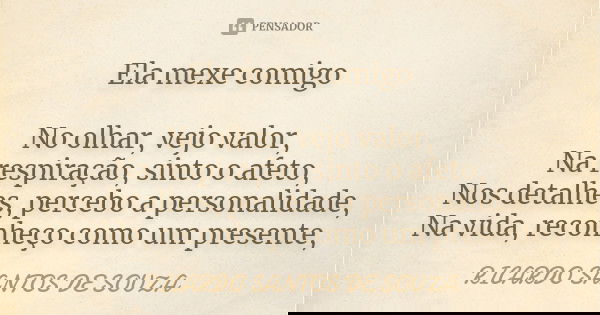 PENSADOR
Ela mexe comigo
No olhar, vejo valor,
Na respiração, sinto o afeto,
Nos detalhes, percebo a personalidade,
Na vida, reconheço como um presente,
RICARDO SANTOS DE SOUZA